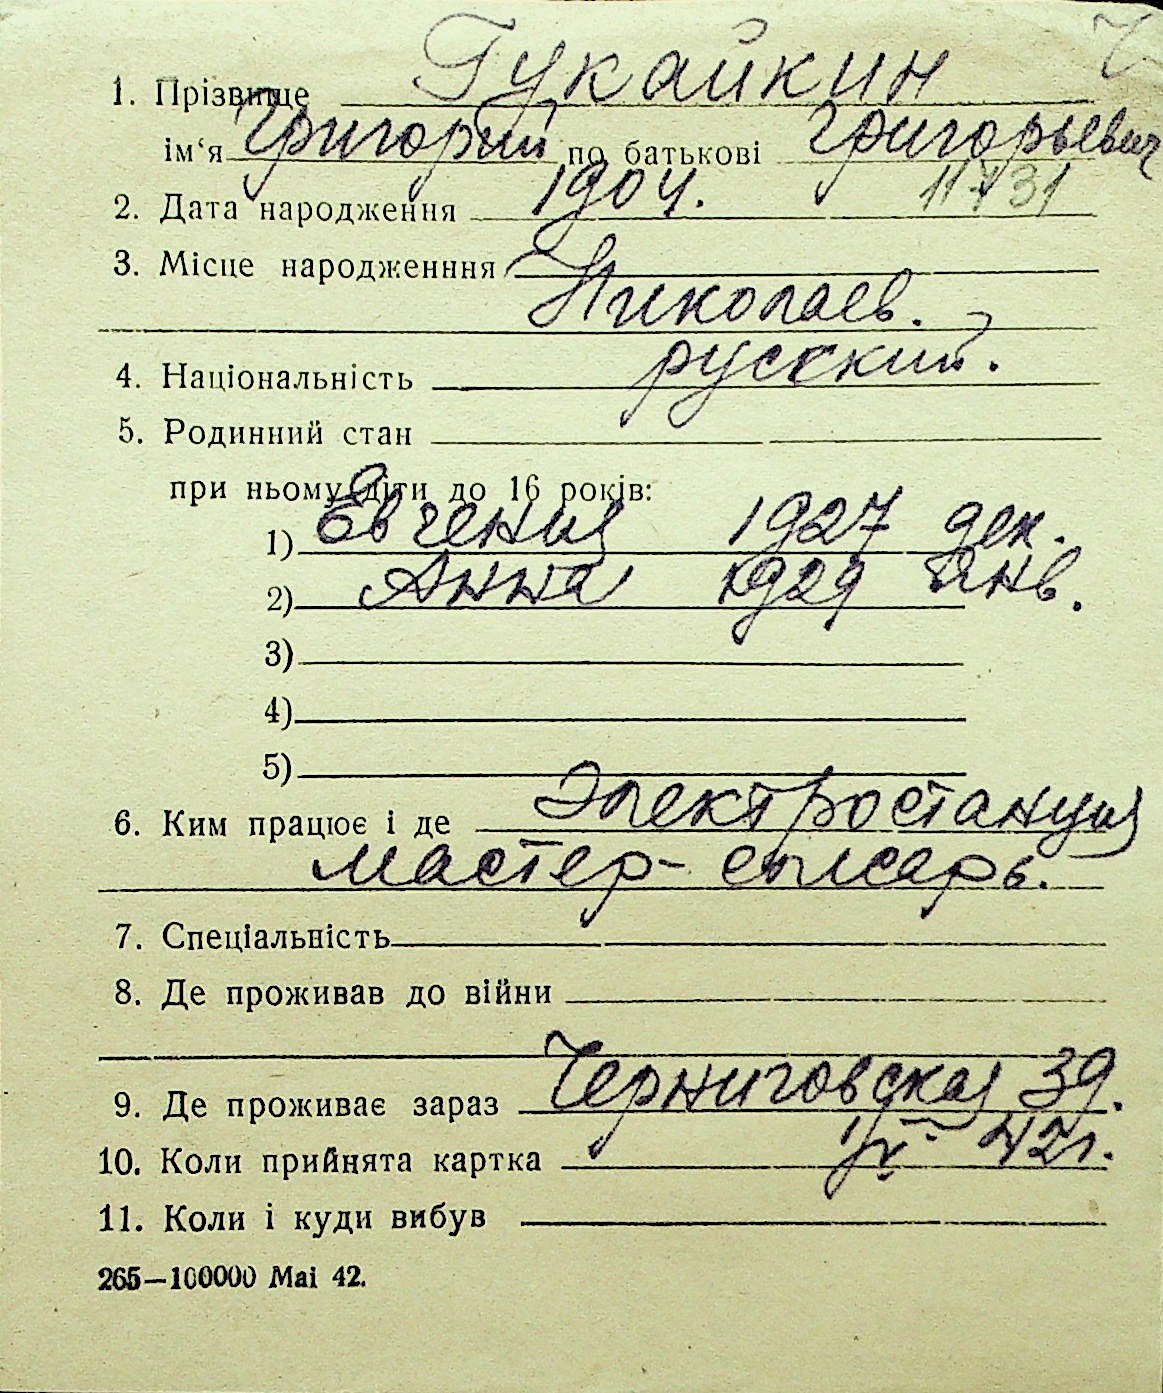 1. Прізвище Гукайкин
ім‘я Григорий по батькові Григорьевич
2. Дата народження 1904. 11731
3. Місце народженння
Николаев.
4. Національність русский.
5. Родинний стан
при ньому діти до 16 років:
1) Евгения 1927 дек.
2) Анна 1929 Янв.
3)
4)
5)
6. Ким працює і де Электростанция
мастер-слесарь.
7. Спеціальність
8. Де проживав до війни
9. Де проживає зараз Черниговская 39.
10. Коли прийнята картка 42 г.
11. Коли і куди вибув
265—100000 Mai 42.